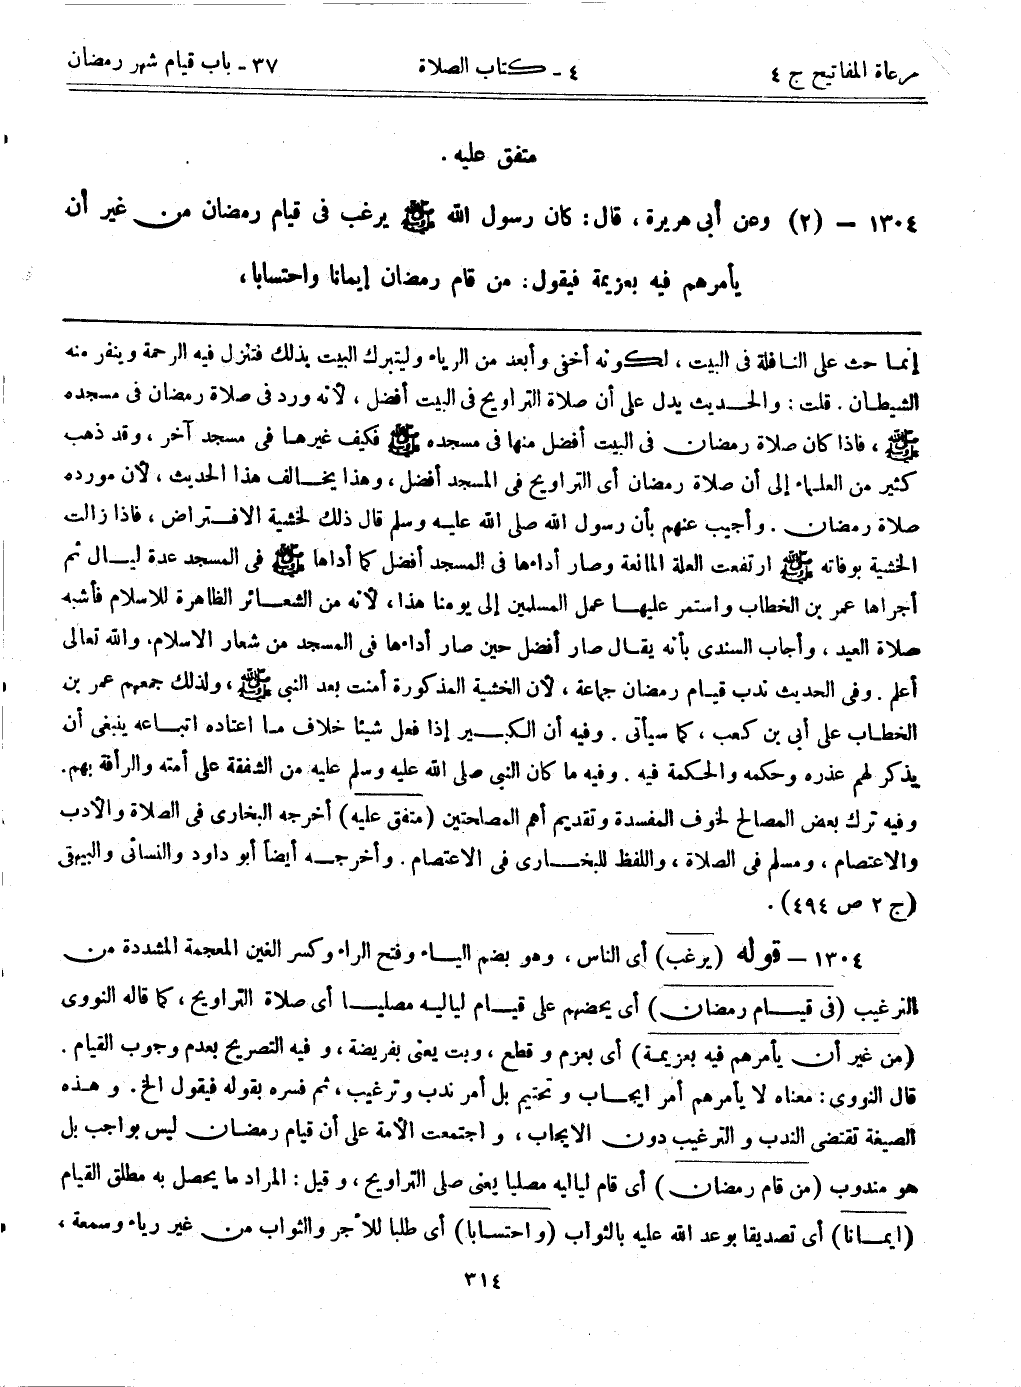 مرعاة المفاتيح ج ٤
٤ - كتاب الصلاة
٣٧ - باب قيام شهر رمضان
متفق عليه .
١٣٠٤ – (٢) وعن أبى هريرة ، قال : كان رسول الله ﷺ يرغب فى قيام رمضان من غير أن
يأمرهم فيه بعزيمة فيقول : من قام رمضان إيمانا واحتسابا ،
إنما حث على النافلة فى البيت ، لكونه أخفى وأبعد من الرياء وليتبرك البيت بذلك فتنزل فيه الرحمة وينفر منه
الشيطان . قلت : والحديث يدل على أن صلاة التراويح فى البيت أفضل ، لأنه ورد فى صلاة رمضان فى مسجده
ﷺ ، فاذا كان صلاة رمضان فى البيت أفضل منها فى مسجده ﷺ فكيف غيرها فى مسجد آخر ، وقد ذهب
كثير من العلماء إلى أن صلاة رمضان أى التراويح فى المسجد أفضل ، وهذا يخالف هذا الحديث ، لأن مورده
صلاة رمضان . وأجيب عنهم بأن رسول الله صلى الله عليه وسلم قال ذلك لخشية الافتراض ، فاذا زالت
الخشية بوفاته ﷺ ارتفعت العلة المانعة وصار أداءها فى المسجد أفضل كما أداها ﷺ فى المسجد عدة ليال ثم
أجراها عمر بن الخطاب واستمر عليها عمل المسلمين إلى يومنا هذا ، لأنه من الشعائر الظاهرة للاسلام فأشبه
صلاة العيد ، وأجاب السندى بأنه يقال صار أفضل حين صار أداءها فى المسجد من شعار الاسلام. والله تعالى
أعلم . وفى الحديث ندب قيام رمضان جماعة ، لأن الخشية المذكورة أمنت بعد النبى ﷺ ، ولذلك جمعهم عمر بن
الخطاب على أبى بن كعب ، كما سيأتى . وفيه أن الكبير إذا فعل شيئا خلاف ما اعتاده اتباعه ينبغى أن
يذكر لهم عذره وحكمه والحكمة فيه . وفيه ما كان النبى صلى الله عليه وسلم عليه من الشفقة على أمته والرأفة بهم.
وفيه ترك بعض المصالح لخوف المفسدة وتقديم أهم المصلحتين (متفق عليه) أخرجه البخارى فى الصلاة والأدب
والاعتصام ، ومسلم فى الصلاة ، واللفظ للبخارى فى الاعتصام . وأخرجه أيضاً أبو داود والنسائى والبيهقى
(ج ٢ ص ٤٩٤) .
١٣٠٤ – قوله (يرغب) أى الناس ، وهو بضم الياء وفتح الراء وكسر الغين المعجمة المشددة من
الترغيب (فى قيام رمضان) أى يحضهم على قيام لياليه مصليا أى صلاة التراويح ، كما قاله النووى
(من غير أن يأمرهم فيه بعزيمة) أى بعزم و قطع ، وبت يعنى بفريضة ، و فيه التصريح بعدم وجوب القيام .
قال النووى : معناه لا يأمرهم أمر ايجاب و تحتيم بل أمر ندب وترغيب ، ثم فسره بقوله فيقول الخ . و هذه
الصيغة تقتضى الندب و الترغيب دون الايجاب ، و اجتمعت الأمة على أن قيام رمضان ليس بواجب بل
هو مندوب (من قام رمضان) أى قام لياليه مصليا يعنى صلى التراويح ، و قيل : المراد ما يحصل به مطلق القيام
(ايمانا) أى تصديقا بوعد الله عليه بالثواب (واحتسابا) أى طلبا للأجر والثواب من غير رياء وسمعة ،
٣١٤